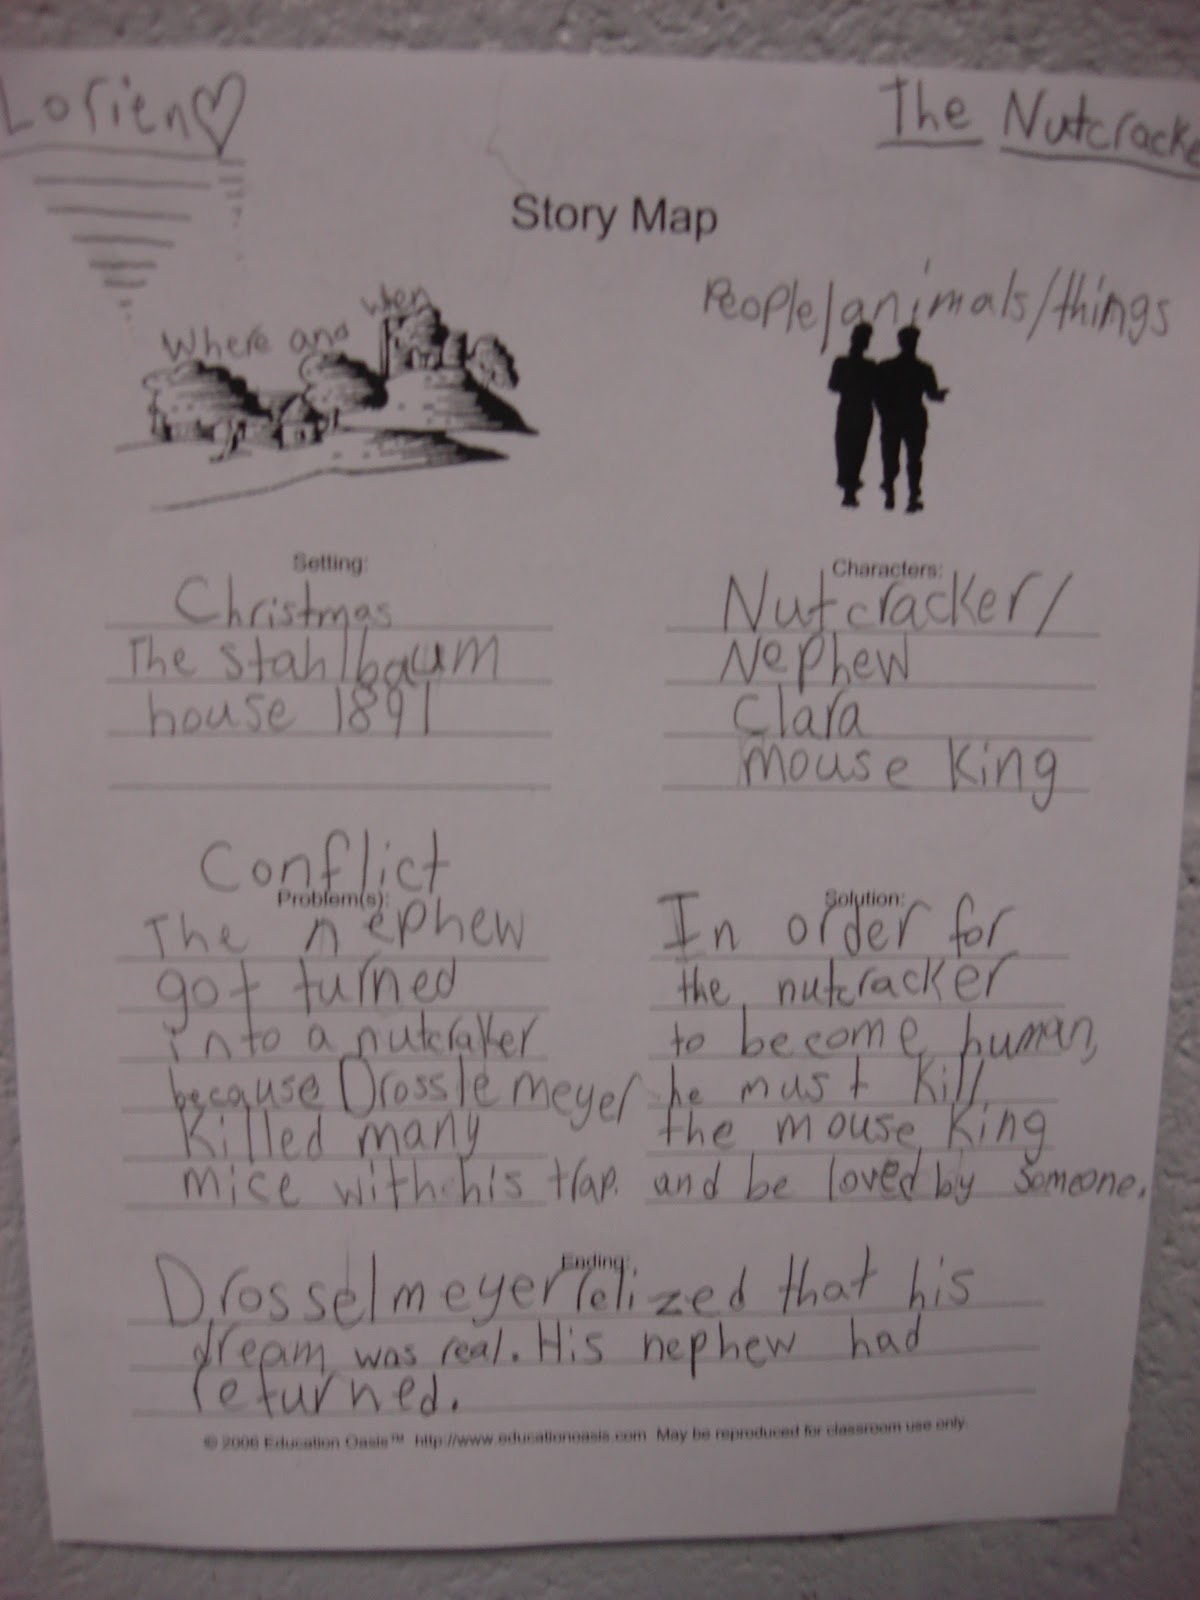 Lorien♡
The Nutcracke
Story Map
Where and when
People/animals/things
Setting:
Christmas
The Stahlbaum
house 1891
Characters:
Nutcracker/
Nephew
Clara
Mouse King
Conflict
Problem(s):
The nephew
got turned
into a nutcraker
because Drosslemeyer
killed many
mice with his trap.
Solution:
In order for
the nutcracker
to become human,
he must kill
the mouse king
and be loved by someone.
Ending:
Drosselmeyer relized that his
dream was real. His nephew had
returned.
© 2006 Education Oasis™ http://www.educationoasis.com May be reproduced for classroom use only.